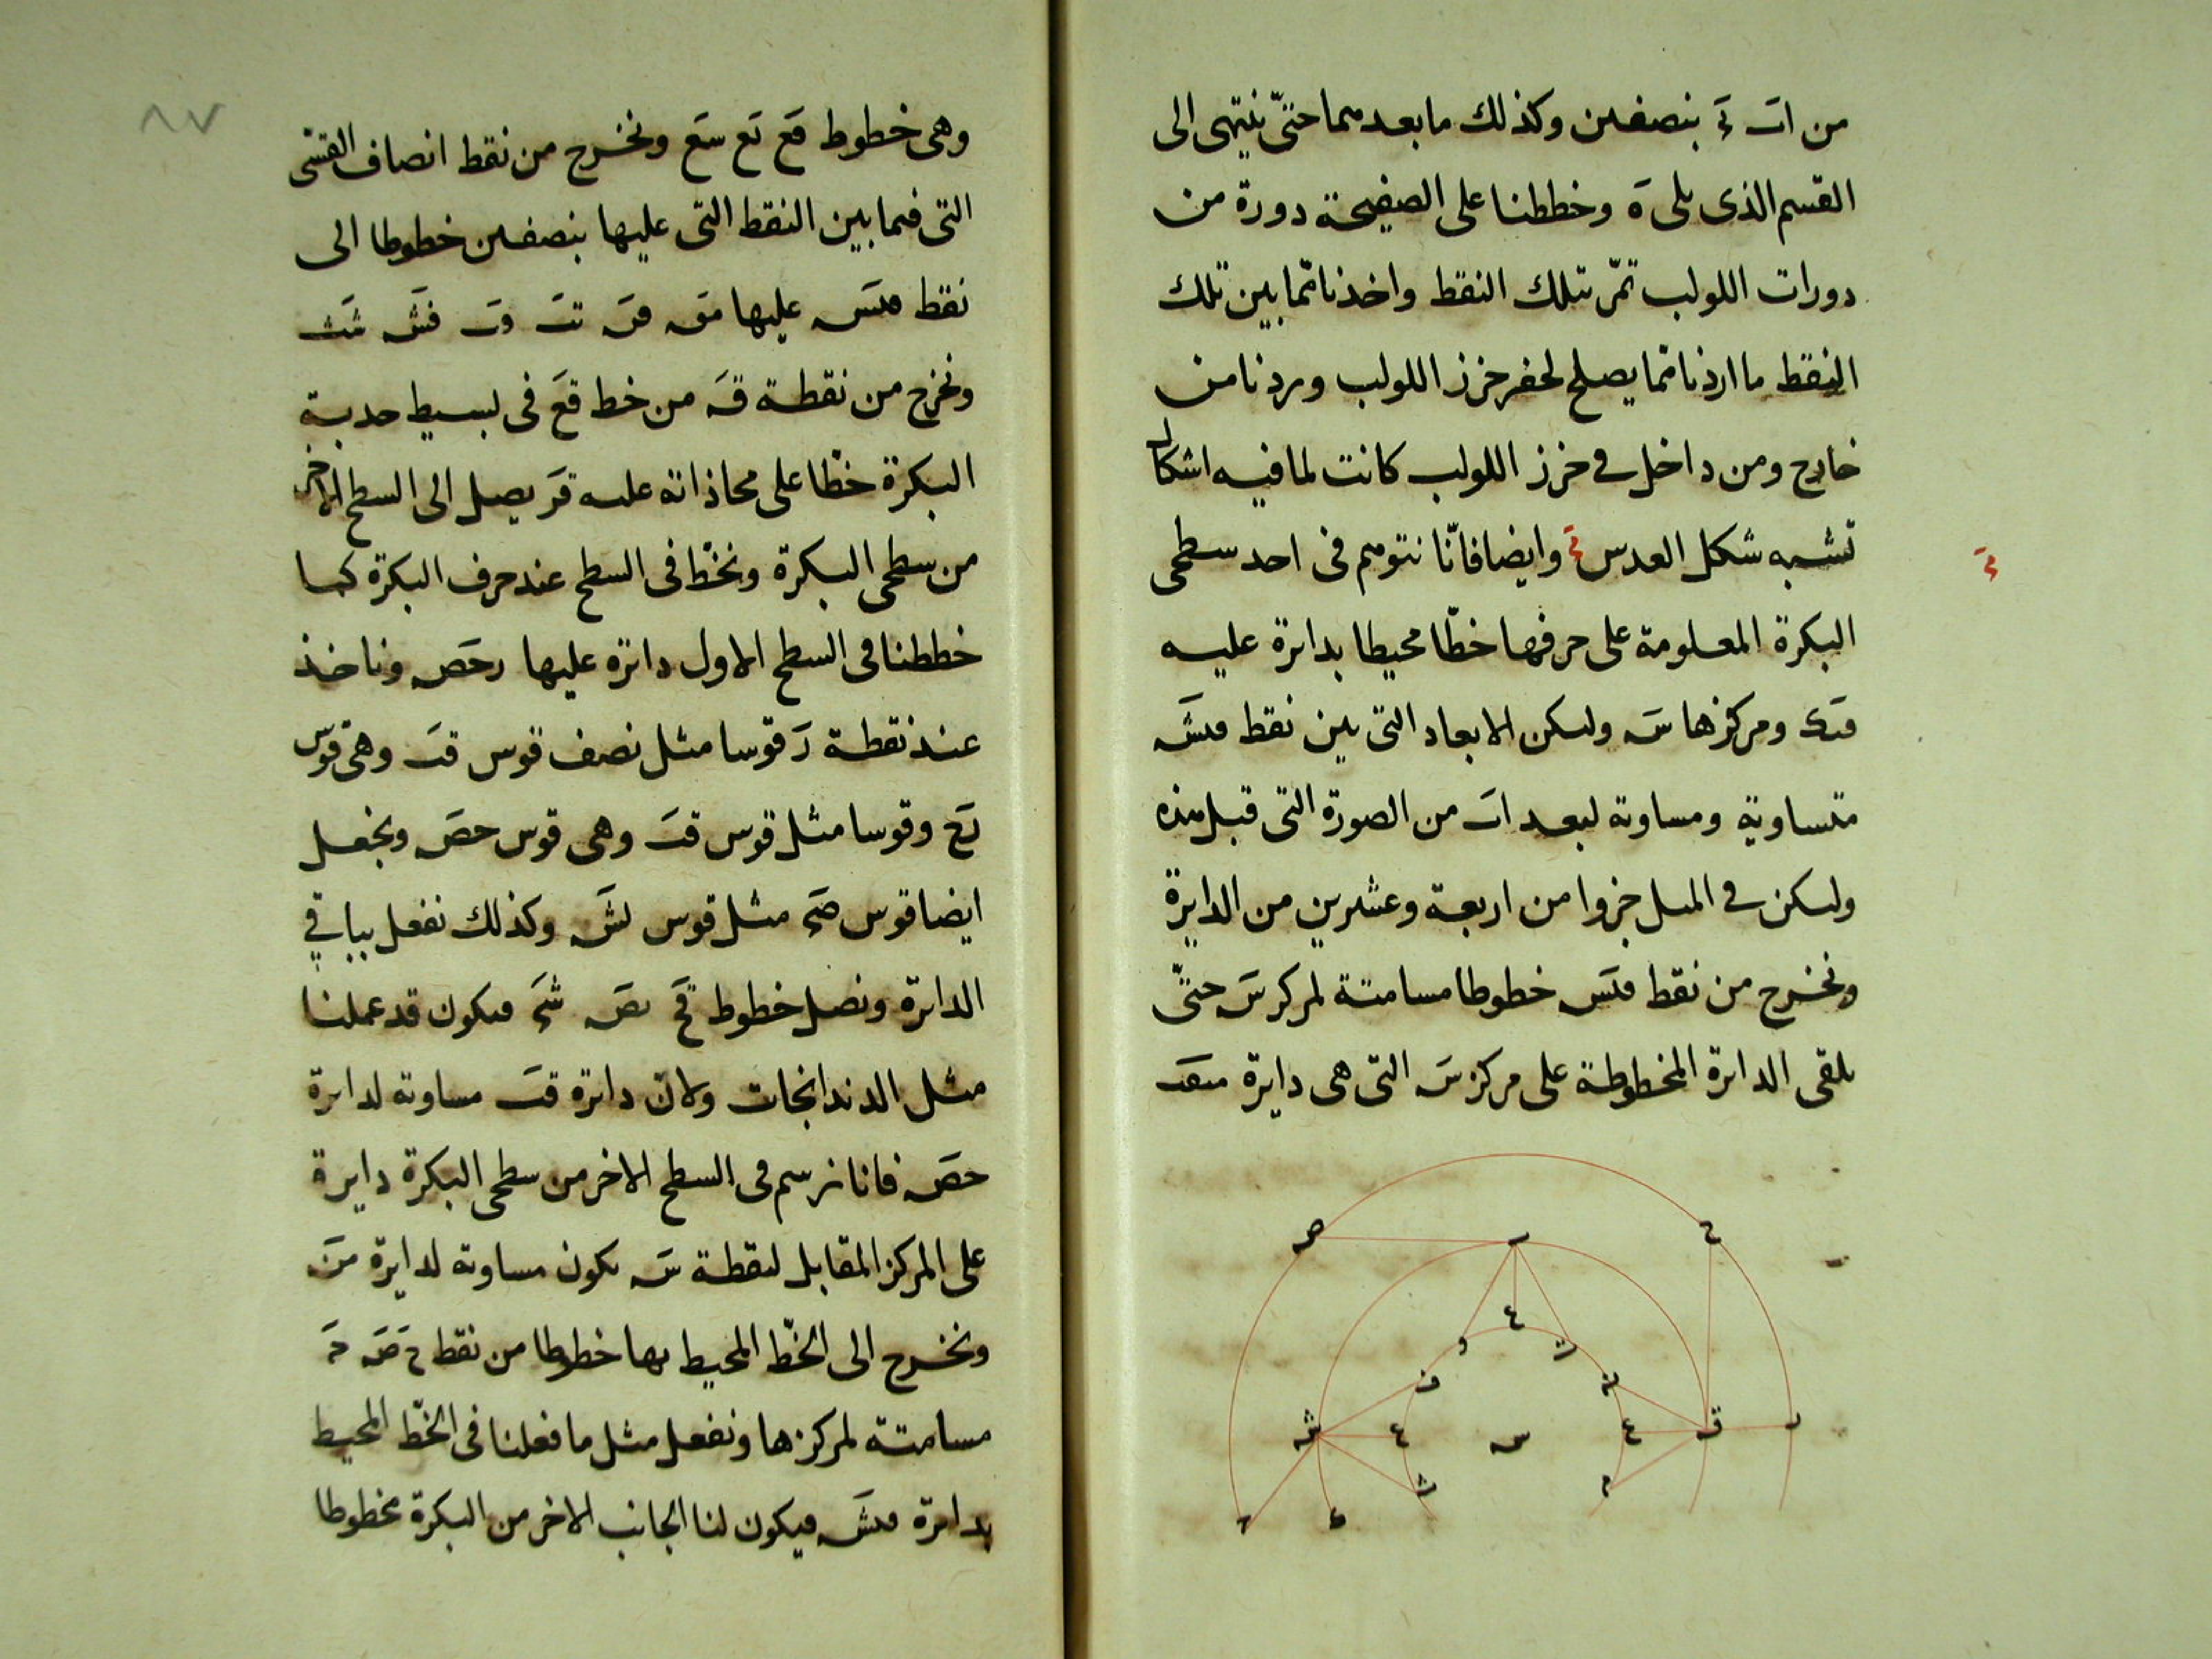 من اب بج بنصفين وكذلك ما بعدهما حتّى ينتهى الى
القسم الذى يلى ه وخططنا على الصفيحة دورة من
دورات اللولب تمرّ بتلك النقط واخذنا ممّا بين تلك
النقط ما اردنا ممّا يصلح لحفر خرز اللولب وبردنا من
خارج ومن داخل فى خرز اللولب كانت لما فيه اشكال
تشبه شكل العدس وايضا فانّا نتوهم فى احد سطحى
البكرة المعلومة على حرفها خطّا محيطا بدائرة عليه
ومركزها س وليكن الابعاد التى بين نقط
متساوية ومساوية لبعد اب من الصورة التى قبل هذه
وليكن فى الميل جزوا من اربعة وعشرين من الدايرة
ونخرج من نقط خطوطا مسامتة لمركز س حتّى
يلقى الدائرة المخطوطة على مركز س التى هى دايرة
ص ح
ع
و ت
ف
ش ع س ع ق ر
ث م
٨٧
وهى خطوط قع بع شع ونخرج من نقط انصاف القسّى
التى فيما بين النقط التى عليها بنصفين خطوطا الى
نقط عليها
ونخرج من نقطة ق من خط قع فى بسيط حدبة
البكرة خطّا على محاذاته عليه قر يصل الى السطح الاخر
من سطحى البكرة ونخطّ فى السطح عند حرف البكرة كما
خططنا فى السطح الاول دائرة عليها رحص وناخذ
عند نقطة ر قوسا مثل نصف قوس قب وهى قوس
رح وقوسا مثل قوس قب وهى قوس حص ونجعل
ايضا قوس مثل قوس بش وكذلك نفعل بباقى
الدائرة ونصل خطوط قح بص فيكون قد عملنا
مثل الدندانجات ولان دائرة قب مساوية لدائرة
حص فانا نرسم فى السطح الاخر من سطحى البكرة دايرة
على المركز المقابل لنقطة س يكون مساوية لدايرة
ونخرج الى الخّط المحيط بها خطوطا من نقط ح ص
مسامتة لمركزها ونفعل مثل ما فعلنا فى الخّط المحيط
بدائرة فيكون لنا الجانب الاخر من البكرة مخطوطا